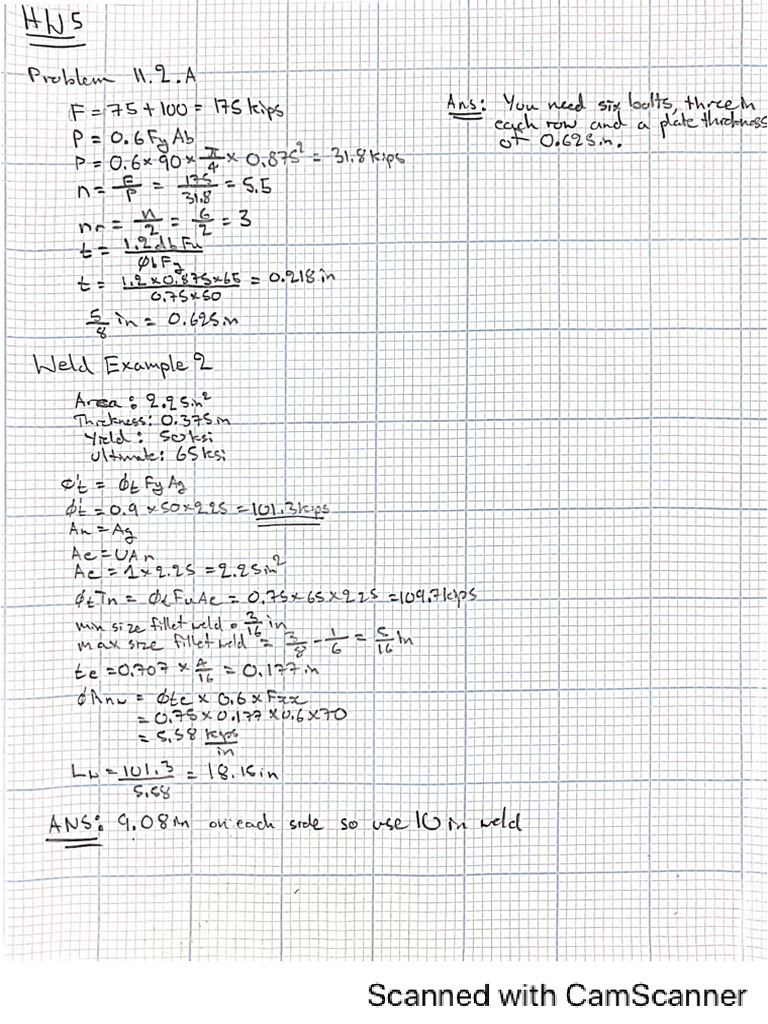 HW5
Problem 11.2.A
F = 75 + 100 = 175 kips
P = 0.6 Fy Ab
P = 0.6 × 90 × π/4 × 0.875² = 31.8 kips
n = F/P = 175/31.8 = 5.5
nr = n/2 = 6/2 = 3
t = 1.2 db Fu / ϕbFy
t = 1.2 × 0.875 × 65 / 0.75 × 50 = 0.218 in
5/8 in = 0.625 in
Ans: You need six bolts, three in
each row and a plate thickness
of 0.625 in.
Weld Example 2
Area: 2.25 in²
Thickness: 0.375 in
Yield: 50 ksi
Ultimate: 65 ksi
ϕt = ϕt Fy Ag
ϕt = 0.9 × 50 × 2.25 = 101.3 kips
An = Ag
Ae = UAn
Ae = 1 × 2.25 = 2.25 in²
ϕtTn = ϕtFuAe = 0.75 × 65 × 2.25 = 109.7 kips
min size fillet weld = 3/16 in
max size fillet weld = 3/8 - 1/6 = 5/16 in
te = 0.707 × 4/16 = 0.177 in
ϕRnw = ϕte × 0.6 × Fxx
= 0.75 × 0.177 × 0.6 × 70
= 5.58 kips/in
Lw = 101.3/5.58 = 18.15 in
ANS: 9.08 in on each side so use 10 in weld
Scanned with CamScanner